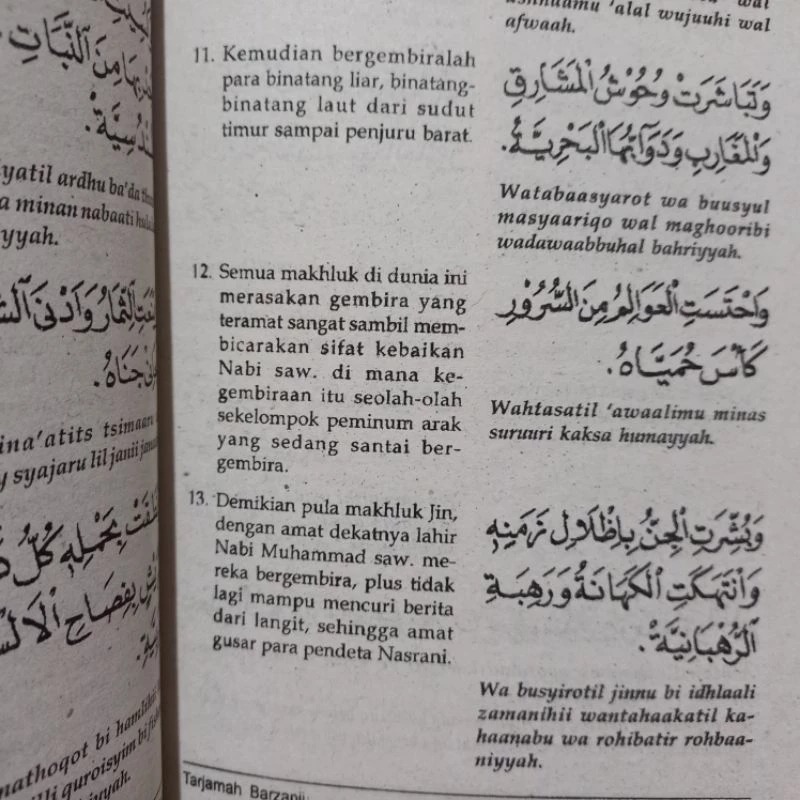 ٱلنَّبَاتِ
yatil ardhu ba'da
a minan nabaati
yyah.
جَنَاهُ.
ina'atits tsimaaru
y syajaru lil janii
بِحَمْلِهِ كُلُّ
بِفِصَاحِ ٱلْأَلْسُ
nathoqot bi hamlihi
lli quroisyim bi
iyyah.
'alal wujuuhi wal
afwaah.
11. Kemudian bergembiralah
para binatang liar, binatang-
binatang laut dari sudut
timur sampai penjuru barat.
وَتَبَاشَرَتْ وُحُوْشُ الْمَشَارِقِ
وَالْمَغَارِبِ وَدَوَآبُّهَا الْبَحْرِيَّةُ.
Watabaasyarot wa buusyul
masyaariqo wal maghooribi
wadawaabbuhal bahriyyah.
12. Semua makhluk di dunia ini
merasakan gembira yang
teramat sangat sambil mem-
bicarakan sifat kebaikan
Nabi saw. di mana ke-
gembiraan itu seolah-olah
sekelompok peminum arak
yang sedang santai ber-
gembira.
وَاحْتَسَتِ الْعَوَالِمُ مِنَ السُّرُوْرِ
كَأْسَ حُمَيَّاهُ.
Wahtasatil 'awaalimu minas
suruuri kaksa humayyah.
13. Demikian pula makhluk Jin,
dengan amat dekatnya lahir
Nabi Muhammad saw. me-
reka bergembira, plus tidak
lagi mampu mencuri berita
dari langit, sehingga amat
gusar para pendeta Nasrani.
وَبُشِّرَتِ الْجِنُّ بِإِظْلَالِ زَمَنِهِ
وَانْتَهَكَتِ الْكَهَانَةُ وَرَهِبَةِ
الرُّهْبَانِيَّةُ.
Wa busyirotil jinnu bi idhlaali
zamanihii wantahaakatil ka-
haanabu wa rohibatir rohbaa-
niyyah.
Tarjamah Barzanji